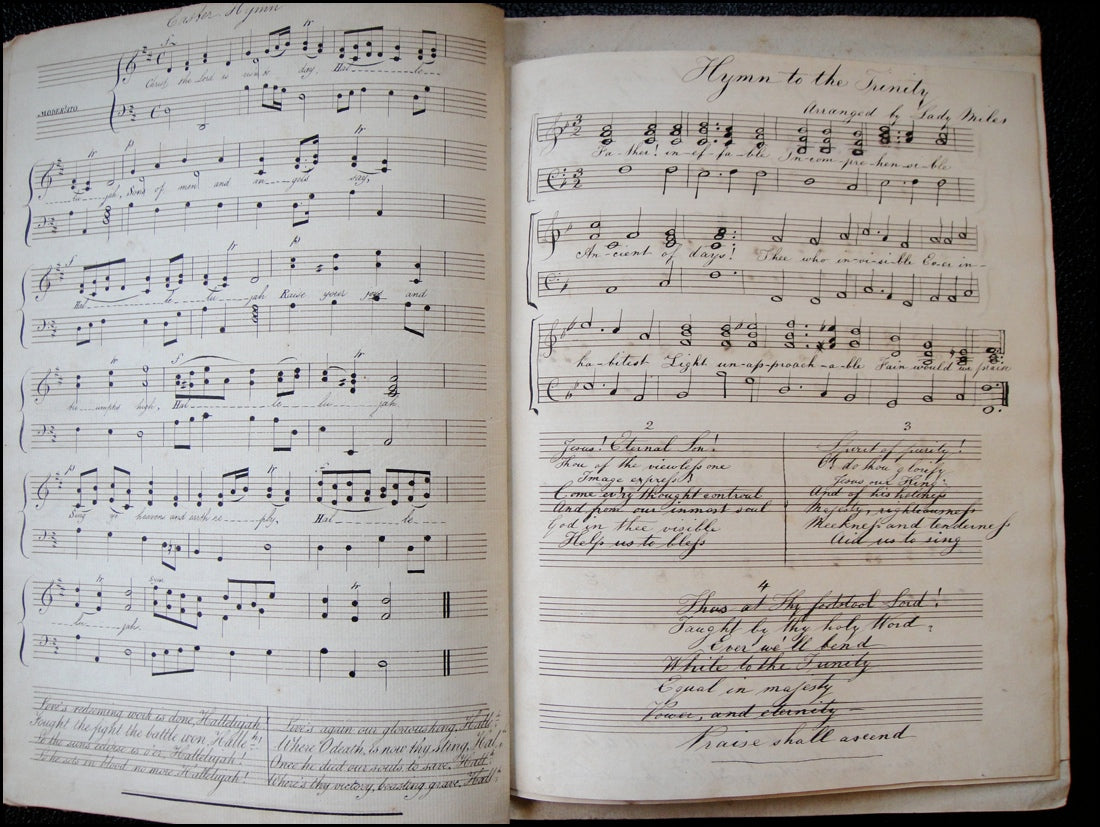 Easter Hymn
Christ the Lord is ris'n to day, Hal------le---
MODERATO
---lu---jah, Sons of men and an---gels say,
Hal------le---lu---jah Raise your joys and
tri---umphs high, Hal------le---lu---jah
Sing ye heavens and earth re---ply, Hal------le---
lu---jah.
Love's redeeming work is done, Hallelujah!
Fought the fight the battle won, Halle:h!
Lo the sun's eclipse is o'er, Hallelujah!
Lo he sets in blood no more Hallelujah!
Love's again our glorious king, Halle:h
Where O death, is now thy sting, Hal:h
Once he died our souls to save, Hall:h
Where's thy victory, boasting grave, Hall:h
Hymn to the Trinity
Arranged by Lady Miles
Fa-ther! in-ef-fa-ble In-com-pre-hen-si-ble
An-cient of days! Thee who in-vi-si-ble Ever in-
ha-bitest Light un-ap-proach-a-ble Fain would we praise
2
Jesus! Eternal Son!
Thou of the viewless one
Image express!
Come ev'ry thought controul
And from our inmost soul
God in thee visible
Help us to bless
3
Spirit of purity!
O! do thou glorify
Jesus our King:
And of his holiness
Majesty, righteousness
Meekness and tenderness
Aid us to sing
4
Thus at Thy footstool Lord!
Taught by thy holy Word
Ever we'll bend
While to the Trinity
Equal in majesty
Power, and eternity—
Praise shall ascend